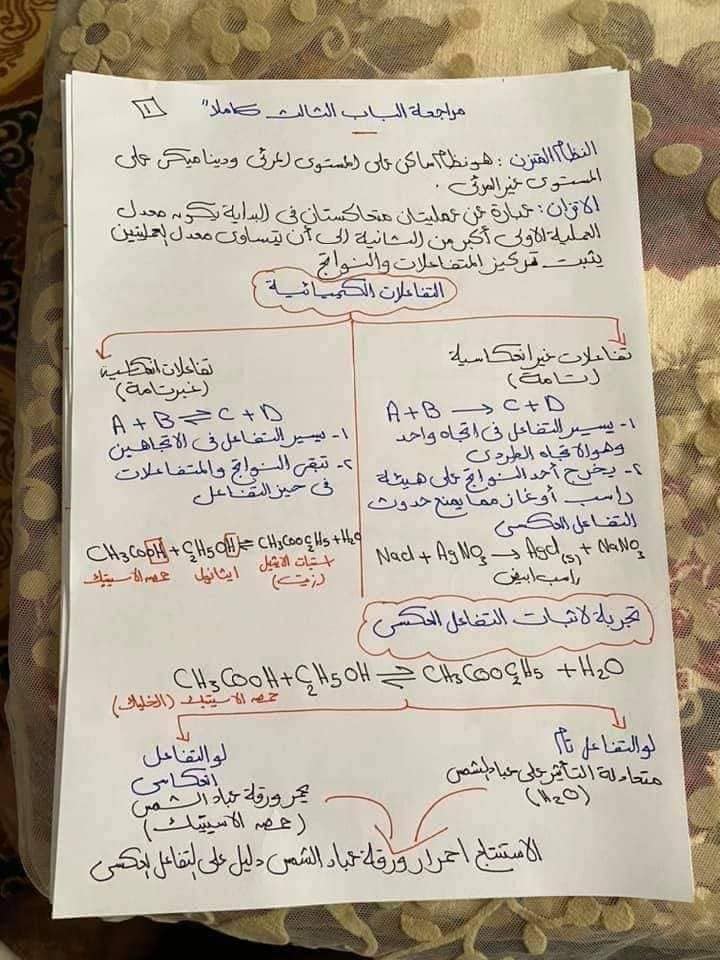 مراجعة الباب الثالث كاملاً
١
النظام المتزن : هو نظام ساكن على المستوى المرئى وديناميكى على
المستوى غير المرئى .
الاتزان : عبارة عن عمليتان متعاكستان فى البداية يكون معدل
العملية الاولى أكبر من الثانية الى أن يتساوى معدل العمليتين
يثبت تركيز المتفاعلات والنواتج
التفاعلات الكيميائية
تفاعلات غير انعكاسية
(تامة)
A + B → C + D
١- يسير التفاعل فى اتجاه واحد
وهو الاتجاه الطردى
٢- يخرج أحد النواتج على هيئة
راسب أو غاز مما يمنع حدوث
التفاعل العكسى
Nacl + AgNO3 → Agcl(s) + NaNO3
راسب ابيض
تفاعلات انعكاسية
(غير تامة)
A + B ⇌ C + D
١- يسير التفاعل فى الاتجاهين
٢- تبقى النواتج والمتفاعلات
فى حيز التفاعل
CH3COOH + C2H5OH ⇌ CH3COOC2H5 + H2O
حمض الاسيتيك ايثانول استيات الايثيل
(زيت)
تجربة لاثبات التفاعل العكسى
CH3COOH + C2H5OH ⇌ CH3COOC2H5 + H2O
حمض الاسيتيك (الخليك)
لو التفاعل تام
متعادلة التأثير على عباد الشمس
(H2O)
لو التفاعل
انعكاسى
يحمر ورقة عباد الشمس
(حمض الاسيتيك)
الاستنتاج احمرار ورقة عباد الشمس دليل على التفاعل العكسى